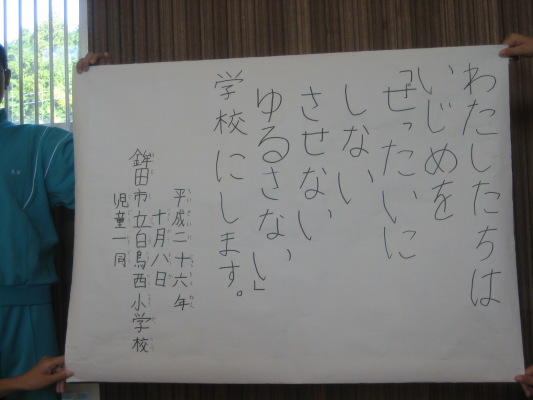 わたしたちは
いじめを
「ぜったいに
しない
させない
ゆるさない」
学校にします。
平成二十六年
十月八日
鉾田市立白鳥西小学校
児童一同